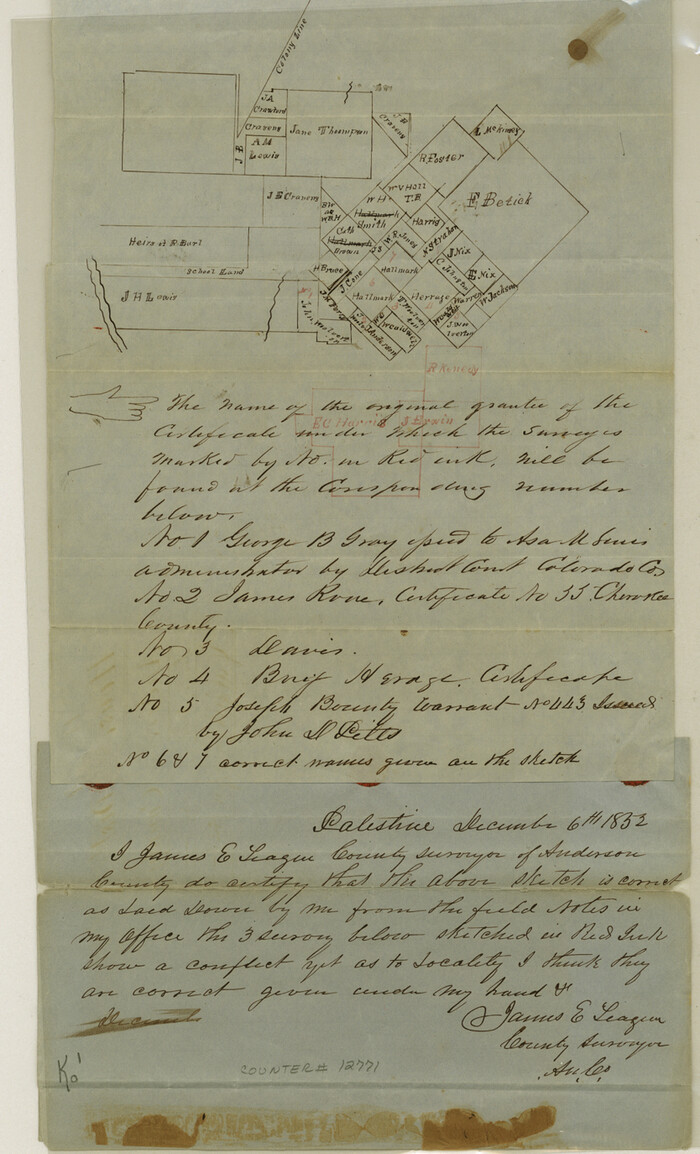 Colony Line
J A
Crawford
Cravens
A M
Lewis
J B
Jane Thompson
J B
Cravens
L McKinney
R Foster
F Bezick
W V Hall
T B
W H
Hallmark
Smith
Harris
N Strahan
J B Cravens
B W
W R H
Cath
Hallmark
Brown
J S
W R Jones
J Nix
E Nix
C Johnston
W Jackson
Heirs of R Earl
School Land
J H Lewis
H Bruce
J Cane
Hallmark
Hallmark
Herrage
Warren
R Kenedy
E C Harris
J Erwin
The name of the original grantee of the
Certificate under which the Surveys
marked by No. in Red ink, will be
found at the Coresponding number
below.
No 1 George B Gray issued to Asa M Lewis
administrator by District Court Colorado Co
No. 2 James Rowe, Certificate No 55 Cherokee
County.
No 3 Davis.
No 4 Benj Herage. Certificate
No 5 Joseph Bounty Warrant No 443 Issued
by John D Pitts
No 6 & 7 correct names given on the sketch
Palestine December 6th 1852
I James E League County surveyor of Anderson
County do certify that the above sketch is correct
as Laid Down by me from the field Notes in
my Office the 3 survey below sketched in Red Ink
show a conflict yet as to Locality I think they
are correct given under my hand &
Decemb
James E League
County surveyor
An. Co.
COUNTER# 12771